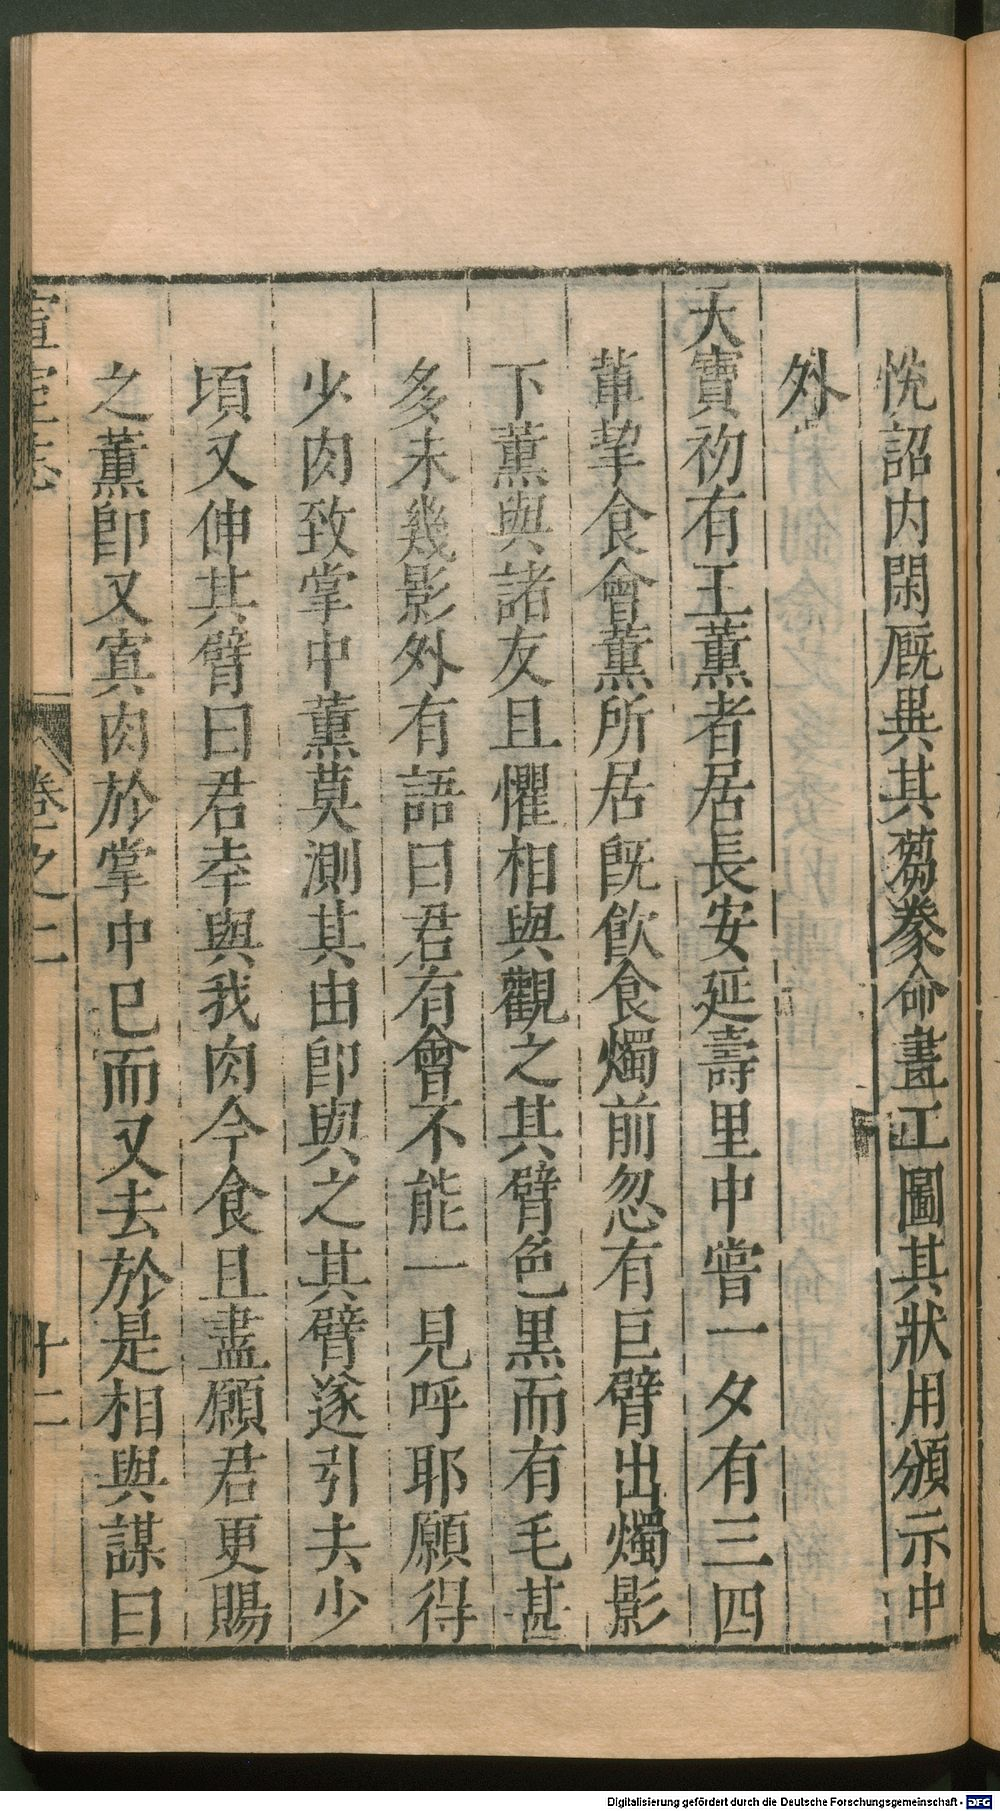 悅詔内閑厩異其芻豢命畫工圖其狀用頒示中
外
天寶初有王薰者居長安延壽里中嘗一夕有三四
輩挈食會薰所居既飲食燭前忽有巨臂出燭影
下薰與諸友且懼相與觀之其臂色黒而有毛甚
多未幾影外有語曰君有會不能一見呼耶願得
少肉致掌中薰莫測其由即與之其臂遂引去少
頃又伸其臂曰君幸與我肉今食且盡願君更賜
之薰即又寘肉於掌中已而又去於是相與謀曰
宣室志
卷之二
十二
Digitalisierung gefördert durch die Deutsche Forschungsgemeinschaft - DFG